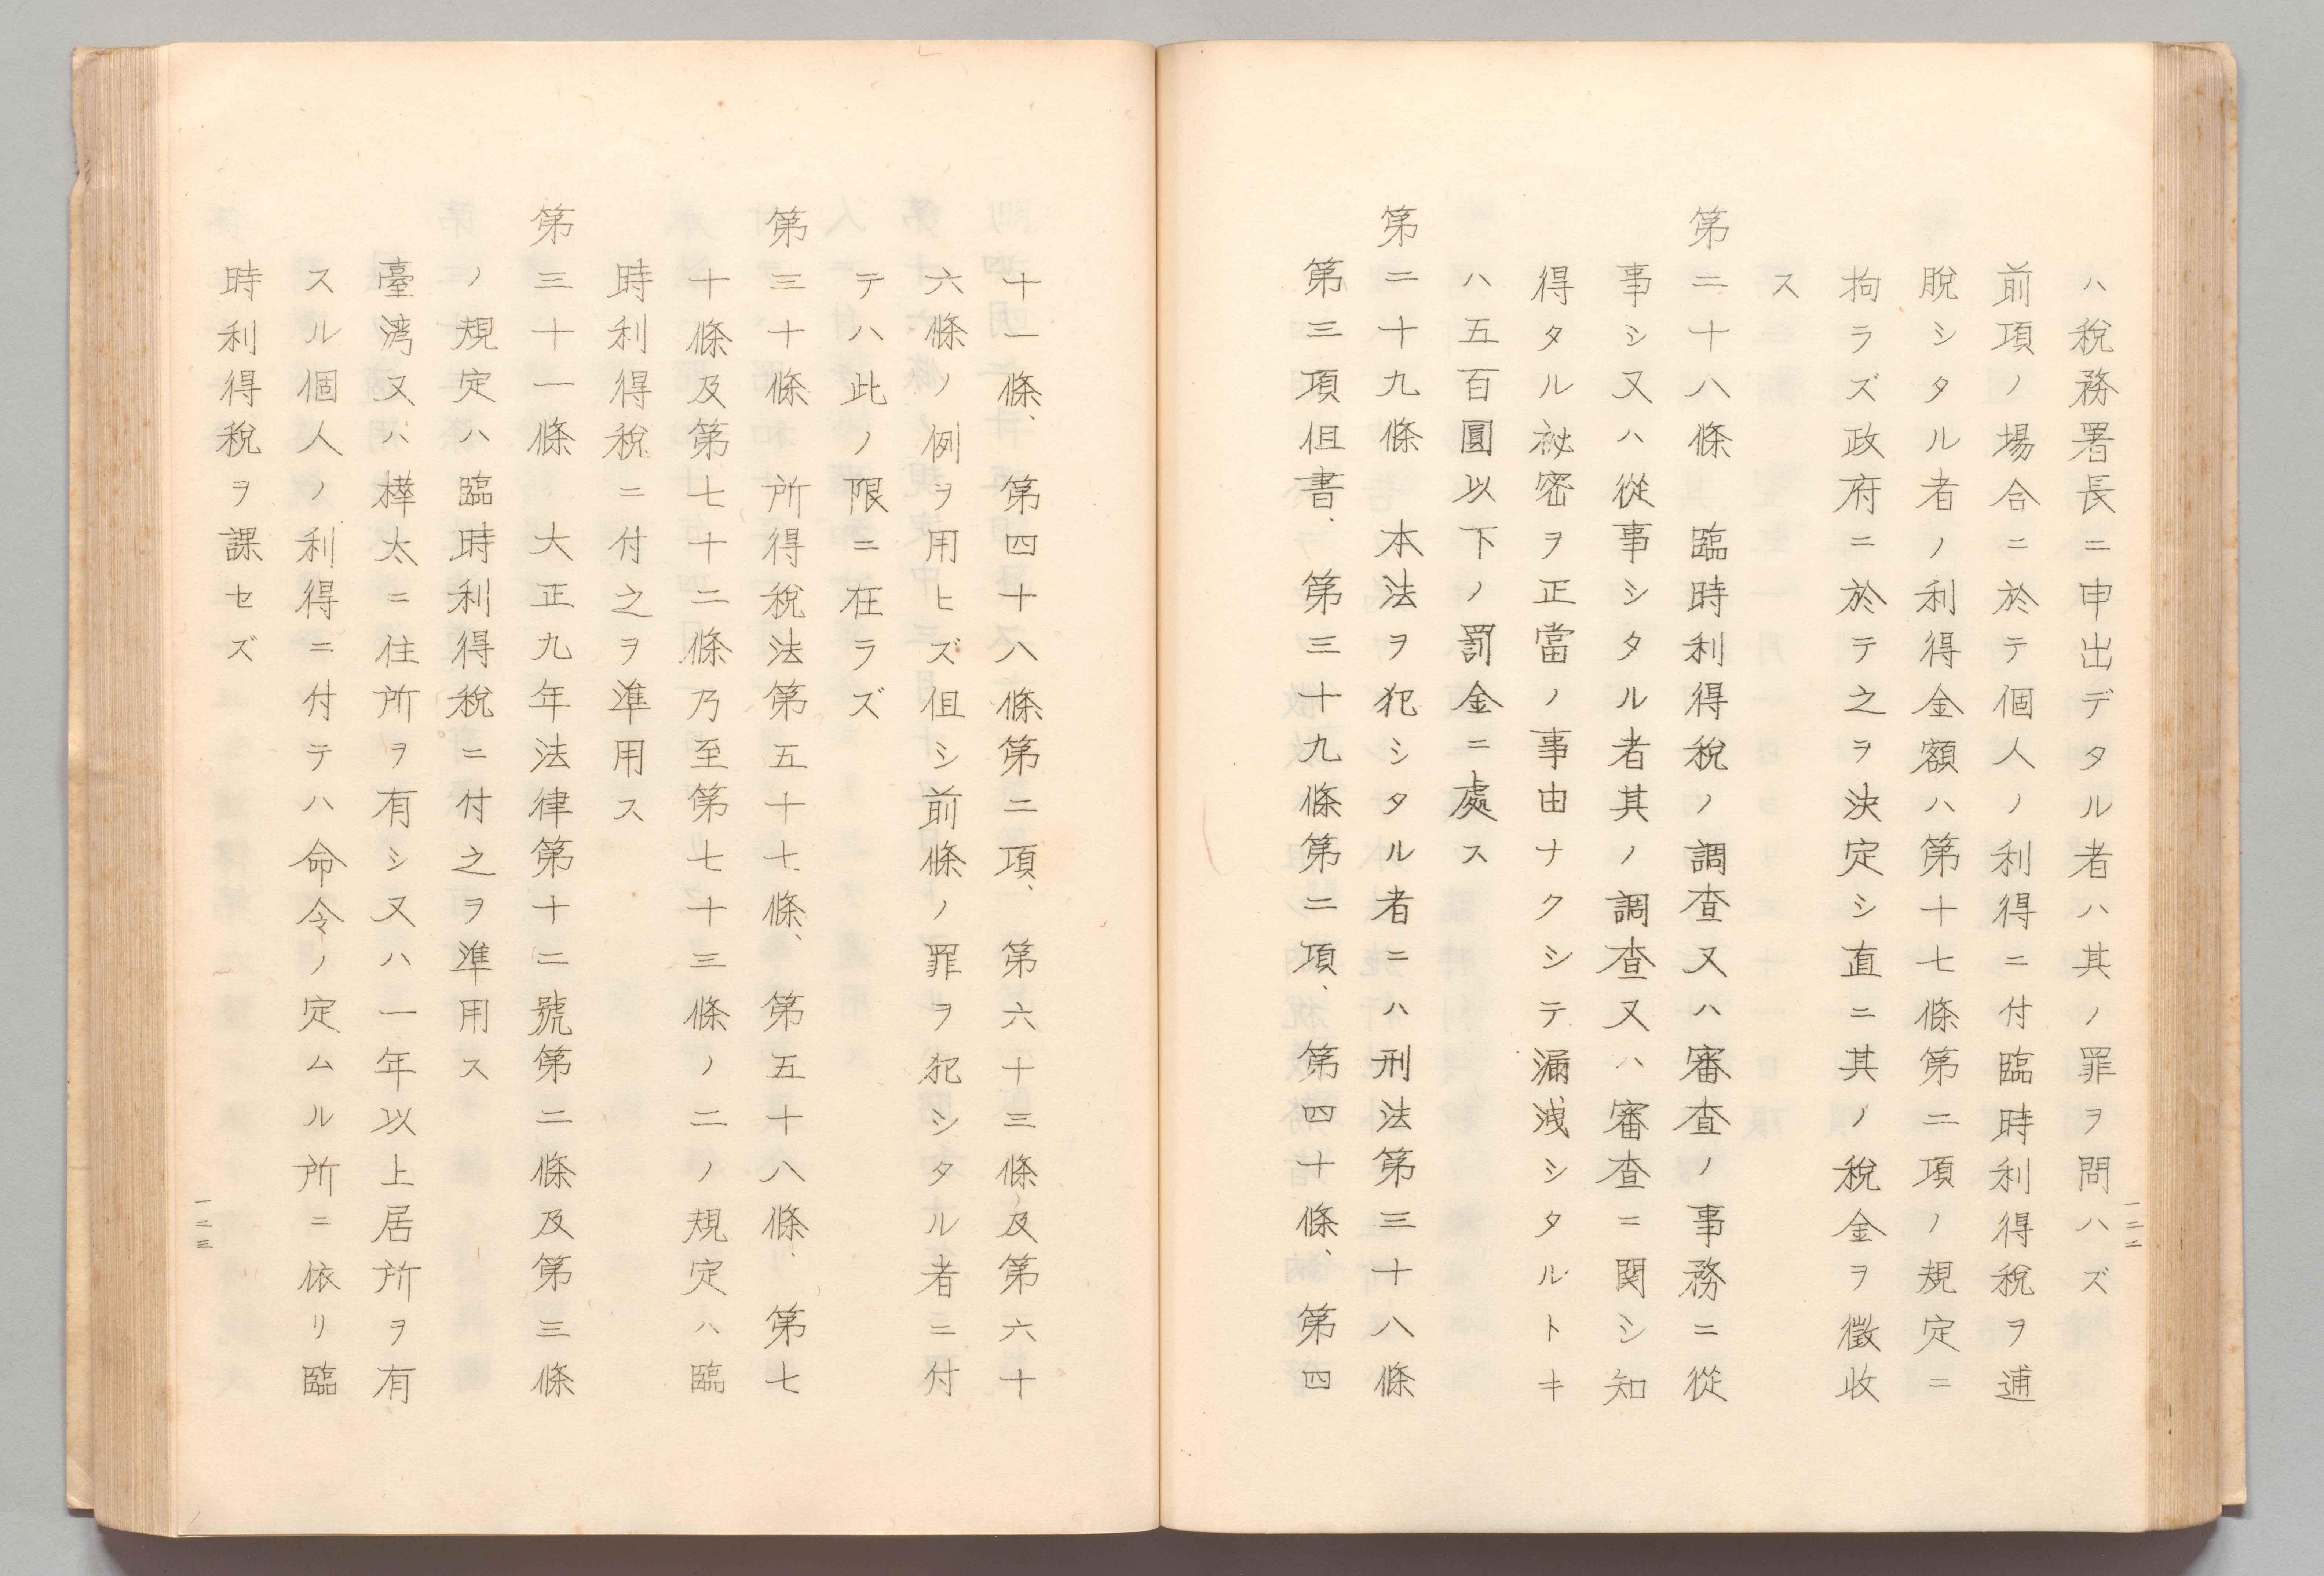 ハ稅務署長ニ申出デタル者ハ其ノ罪ヲ問ハズ
前項ノ場合ニ於テ個人ノ利得ニ付臨時利得稅ヲ逋
脫シタル者ノ利得金額ハ第十七條第二項ノ規定ニ
拘ラズ政府ニ於テ之ヲ決定シ直ニ其ノ稅金ヲ徵收
ス
第二十八條　臨時利得稅ノ調查又ハ審查ノ事務ニ從
事シ又ハ從事シタル者其ノ調查又ハ審查ニ関シ知
得タル祕密ヲ正當ノ事由ナクシテ漏洩シタルトキ
ハ五百圓以下ノ罰金ニ處ス
第二十九條　本法ヲ犯シタル者ニハ刑法第三十八條
第三項但書、第三十九條第二項、第四十條、第四
一二二
十一條、第四十八條第二項、第六十三條及第六十
六條ノ例ヲ用ヒズ但シ前條ノ罪ヲ犯シタル者ニ付
テハ此ノ限ニ在ラズ
第三十條　所得稅法第五十七條、第五十八條、第七
十條及第七十二條乃至第七十三條ノ二ノ規定ハ臨
時利得稅ニ付之ヲ準用ス
第三十一條　大正九年法律第十二號第二條及第三條
ノ規定ハ臨時利得稅ニ付之ヲ準用ス
臺湾又ハ樺太ニ住所ヲ有シ又ハ一年以上居所ヲ有
スル個人ノ利得ニ付テハ命令ノ定ムル所ニ依リ臨
時利得稅ヲ課セズ
一二三